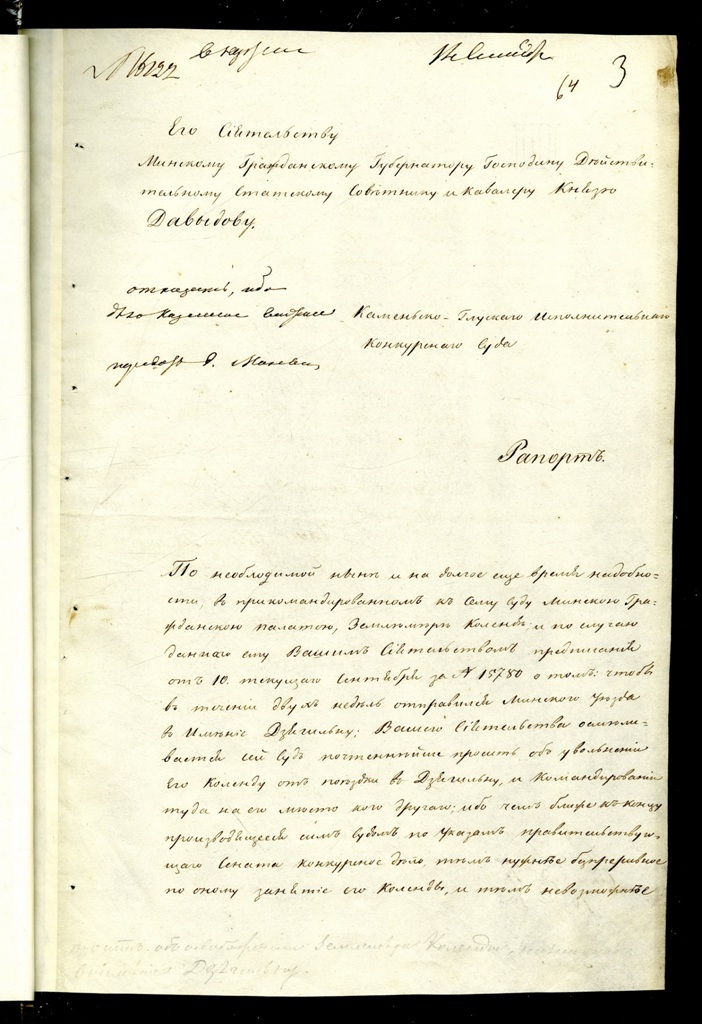 64 3
Его Сіятельству
Минскому Гражданскому Губернатору Господину Дѣйстви-
тельному Статскому Совѣтнику и Кавалеру Князю
Давыдову.
отказать, ибо
дѣло
Каменьско-Глускаго Исполнительнаго
Конкурснаго Суда
Рапортъ.
По необходимой нынѣ и на долгое еще время надобно-
сти, въ прикомандированномъ къ сему суду Минскою Гра-
жданскою палатою, Землемѣрѣ Колендѣ, и по случаю
даннаго ему Вашимъ Сіятельствомъ предписанія
отъ 10. текущаго Сентября за № 15780 о томъ: чтобы
въ теченіи двухъ недѣль отправился Минскаго уѣзда
въ Имѣніе Дзягильну; Вашего Сіятельства осмѣли-
вается сей Судъ почтеннѣйше просить объ увольненіи
Его Коленду отъ поѣздки въ Дзягильну, и Командированіи
туда на его мѣсто кого другаго; ибо чемъ ближе къ концу
производящееся симъ судомъ по Указамъ правительствую-
щаго Сената конкурсное дѣло, тѣмъ нужнѣе безпрерывное
по оному занятіе его Коленды, и тѣмъ невозможнѣе